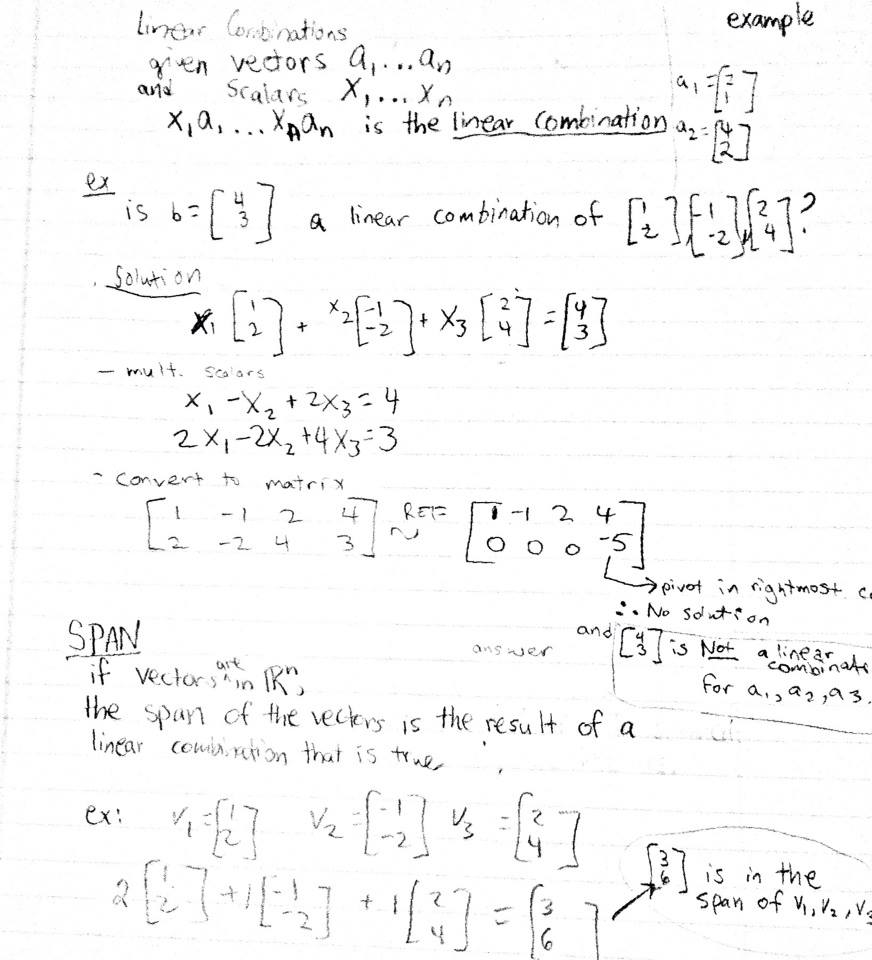 Linear Combinations
example
given vectors a₁...aₙ
and scalars X₁...Xₙ
a₁ = [2 1]
x₁a₁...Xₙaₙ is the linear combination
a₂ = [4 2]
ex
is b = [4 3] a linear combination of [1 2], [-1 -2], [2 4]?
Solution
X₁ [1 2] + X₂ [-1 -2] + X₃ [2 4] = [4 3]
- mult. scalars
X₁ - X₂ + 2X₃ = 4
2X₁ - 2X₂ + 4X₃ = 3
- convert to matrix
[1 -1 2 4] REF [1 -1 2 4]
[2 -2 4 3] ~ [0 0 0 -5]
→ pivot in rightmost
∴ No solution
SPAN
answer
and [4 3] is Not a linear
combinat
for a₁, a₂, a₃.
if vectors are in ℝⁿ,
the span of the vectors is the result of a
linear combination that is true,
ex: V₁ = [1 2] V₂ = [-1 -2] V₃ = [2 4]
2 [1 2] + 1 [-1 -2] + 1 [2 4] = [3 6]
[3 6] is in the
span of V₁, V₂, V₃